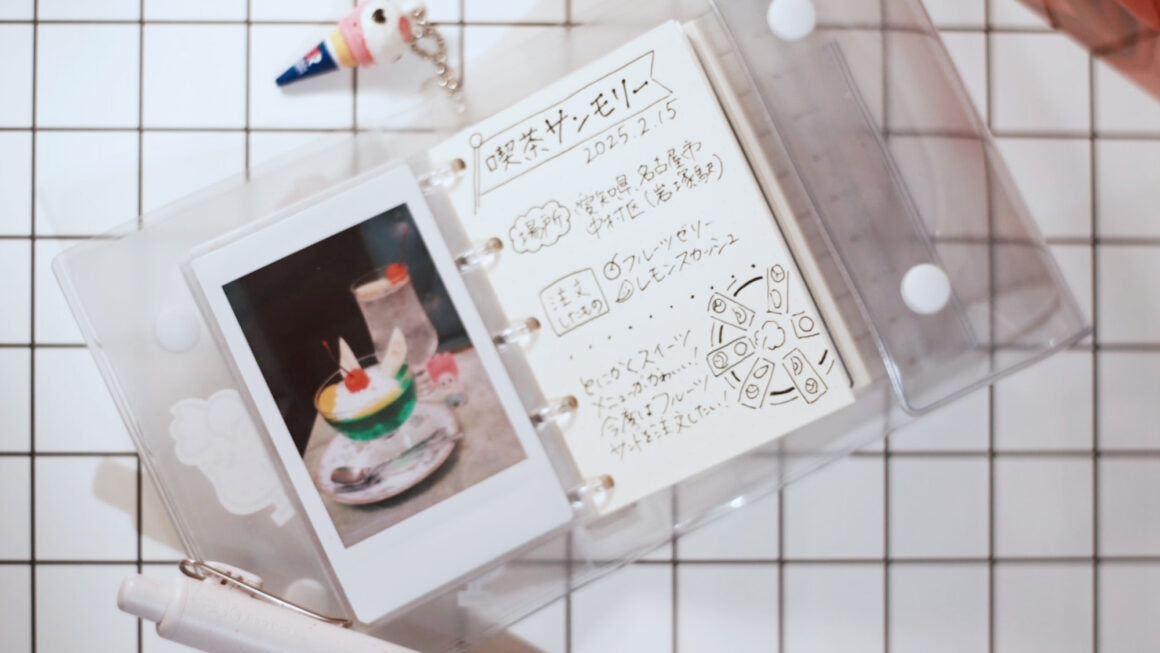 喫茶サンモリー
2025.2.15
場所
愛知県名古屋市
中村区(岩塚駅)
注文
したもの
フルーツゼリー
レモンスカッシュ
とにかくスイーツ
メニューがかわいい!
今度はフルーツ
サンドを注文したい!